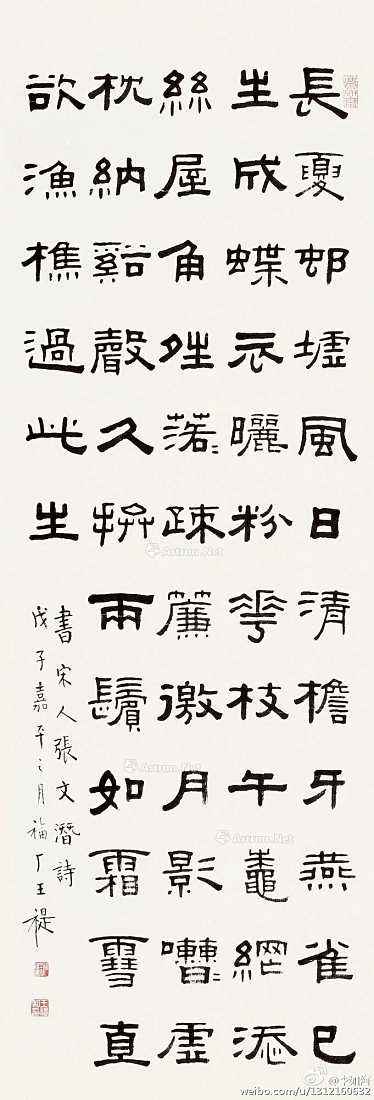 長夏邨墟風日清檐牙燕雀已
生成蝶衣曬粉華枝午鼄網添
絲屋角夝落〻疎簾邀月影嘈〻虛
枕納谿聲久拚兩鬢如霜雪直
欲漁樵過此生
書宋人張文潛詩
戊子嘉平之月福厂王禔
Artron.Net
Artron.Net
Artron.Net
weibo.com/u/1312160632